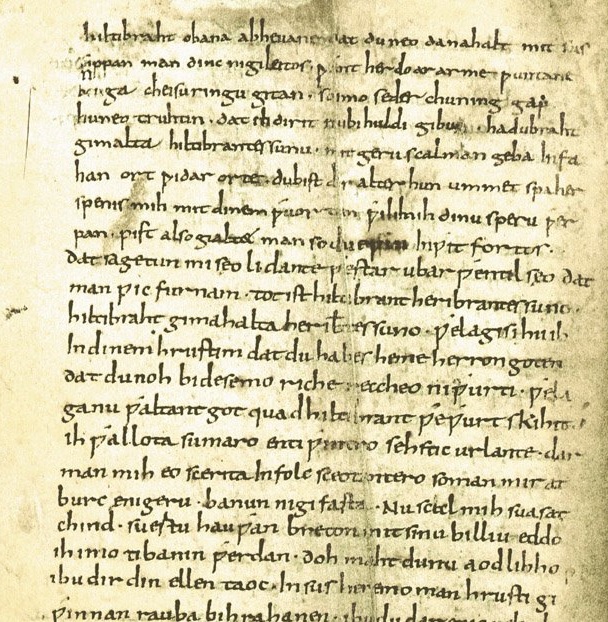 hiltibraht obana abheuane dat duneo danahalt mit sus
sippan man dinc nigileitos · want herdoararme wuntane
bouga cheisuringu gitan · soimo seder chuning gap
huneo truhtin · dat ih dirit nubihuldi gibu · hadubraht
gimalta hiltibrantes sunu · mit geru scal man geba infa
han ort widar orte · dubist dir alter hun ummet spaher
spenis mih mit dinem wuortun wilihmih dinu speru wer
pan · pist also gialtet man so du inwit fortos ·
dat sagetun mi seo lidante westar ubar wentil seo dat
man wic furnam · tot ist hiltibrant heribrantes suno ·
hiltibraht gimahalta heribtes suno · welagisihu ih
In dinem hrustim dat du habes heme herron goten
dat du noh bi desemo riche reccheo ni wurti · wela
ganu waltant got quad hiltibrant wewurt skihit ·
ih wallota sumaro enti wintro sehstic urlante · dar
man mih eo scerita In folc sceotantero so man mir at
burc enigeru · banun ni gifasta · Nu scal mih suasat
chind · suertu hauwan breton mit sinu billiu eddo
ih imo ti banin werdan · doh maht du nu aodlihho
ibu dir din ellen taoc · In sus heremo man hrusti gi
winnan rauba bihrahanen · ibu du dar